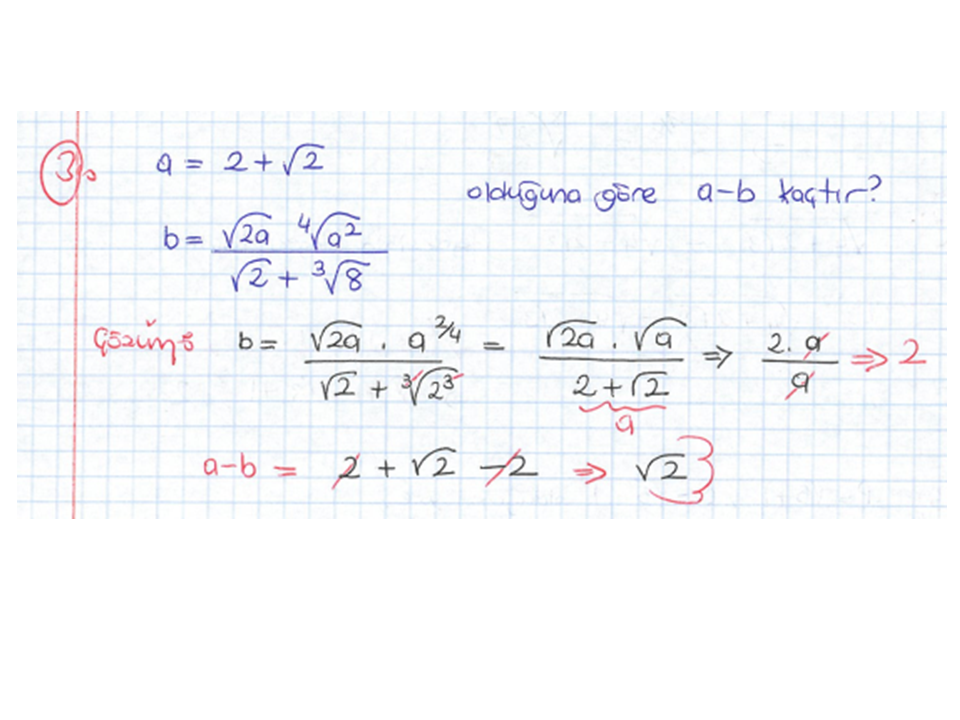 3.
a = 2 + √2
b = (√2a ⁴√a²) / (√2 + ³√8)
olduğuna göre a-b kaçtır?
Çözüm: b = (√2a . a^2/4) / (√2 + ³√2³) = (√2a . √a) / (2 + √2) ⇒ (2 . a) / a ⇒ 2
a
a-b = 2 + √2 - 2 ⇒ √2